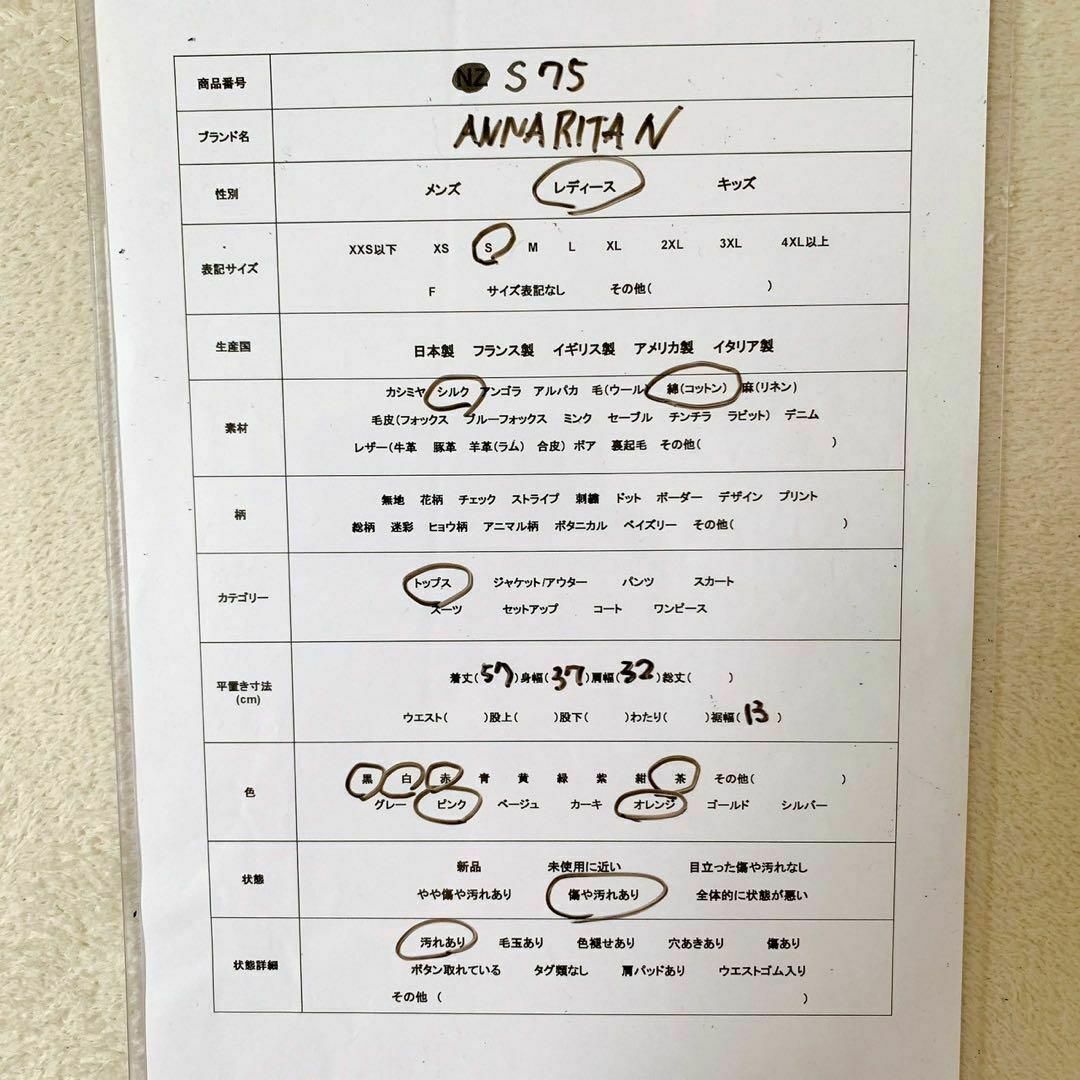 商品番号 NZ S 75
ブランド名 ANNA RITA N
性別 メンズ レディース キッズ
表記サイズ XXS以下 XS S M L XL 2XL 3XL 4XL以上
F サイズ表記なし その他( )
生産国 日本製 フランス製 イギリス製 アメリカ製 イタリア製
素材 カシミヤ シルク アンゴラ アルパカ 毛(ウール) 綿(コットン) 麻(リネン)
毛皮(フォックス ブルーフォックス ミンク セーブル チンチラ ラビット) デニム
レザー(牛革 豚革 羊革(ラム) 合皮) ボア 裏起毛 その他( )
柄 無地 花柄 チェック ストライプ 刺繍 ドット ボーダー デザイン プリント
総柄 迷彩 ヒョウ柄 アニマル柄 ボタニカル ペイズリー その他( )
カテゴリー トップス ジャケット/アウター パンツ スカート
スーツ セットアップ コート ワンピース
平置き寸法 着丈(57)身幅(37)肩幅(32)総丈( )
(cm) ウエスト( )股上( )股下( )わたり( )裾幅(13)
色 黒 白 赤 青 黄 緑 紫 紺 茶 その他( )
グレー ピンク ベージュ カーキ オレンジ ゴールド シルバー
状態 新品 未使用に近い 目立った傷や汚れなし
やや傷や汚れあり 傷や汚れあり 全体的に状態が悪い
状態詳細 汚れあり 毛玉あり 色褪せあり 穴あきあり 傷あり
ボタン取れている タグ類なし 肩パッドあり ウエストゴム入り
その他 ( )